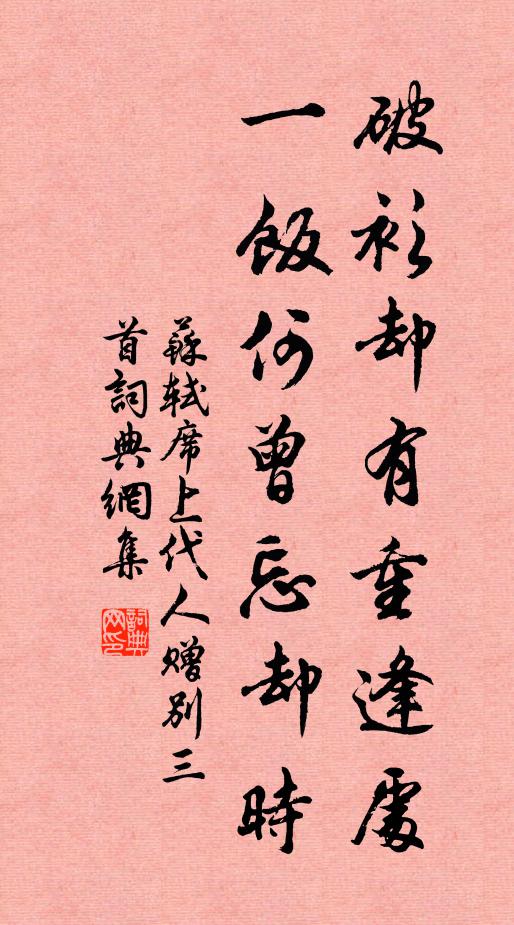 破衫却有重逢處
一飯何曾忘却時
蘇軾席上代人贈別三
首詞典網集
詞典
网印